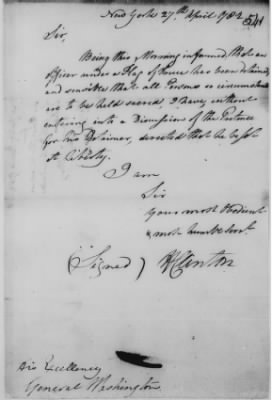 New York 27th April 1782
Sir,
Being this Morning informed, that an
Officer under a Flag of Truce has been detained,
and sensible that all Persons so circumstanced
are to be held sacred, I have, without
entering into a Discussion of the Pretence
for his Detainer, directed that he be set
at Liberty.
I am
Sir
Your most Obedient
& most humble Servt.
(Signed) H Clinton
His Excellency
General Washington